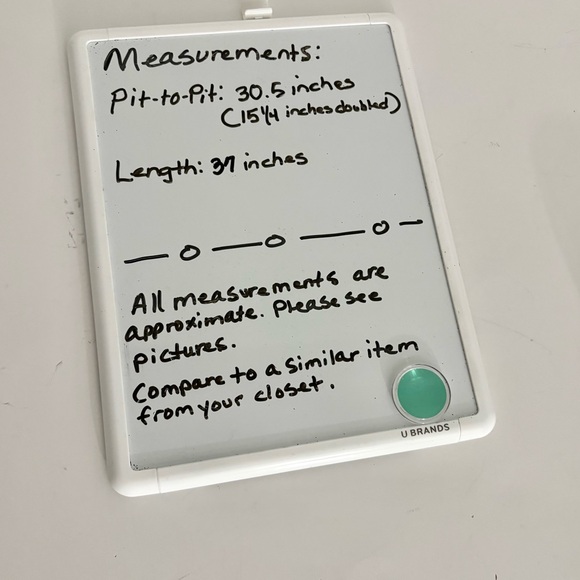 Measurements:
Pit-to-Pit: 30.5 inches
(15 1/4 inches doubled)
Length: 37 inches
All measurements are
approximate. Please see
pictures.
Compare to a similar item
from your closet.
U BRANDS